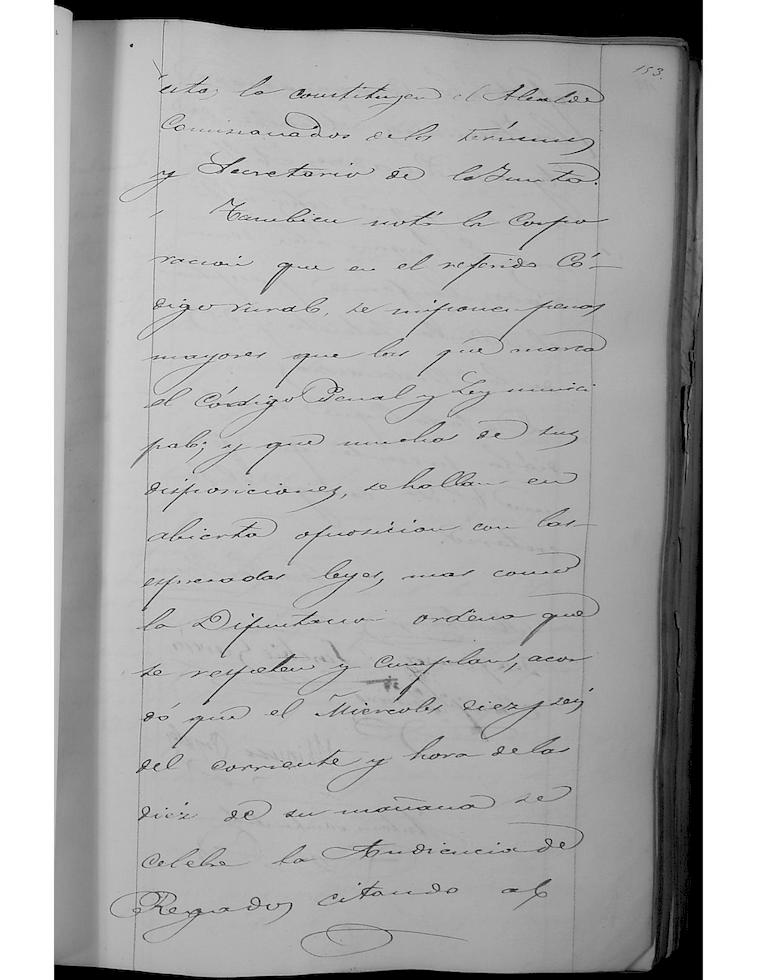 153.
ésta; la constituyen el Alcalde
Comisionados de los términos
y Secretario de la Junta.
Tambien notó la Corpo
racion que en el referido Có-
digo rural, se imponen penas
mayores que las que marca
el Código Penal y Ley munici
pal; y que muchas de sus
disposiciones, se hallan en
abierta oposicion con las
espresadas leyes, mas como
la Diputacion ordena que
se respeten y cumplan, acor
dó que el Miércoles diez y seis
del corriente y hora de las
diéz de su mañana se
celebre la Audiencia de
Regados citando al